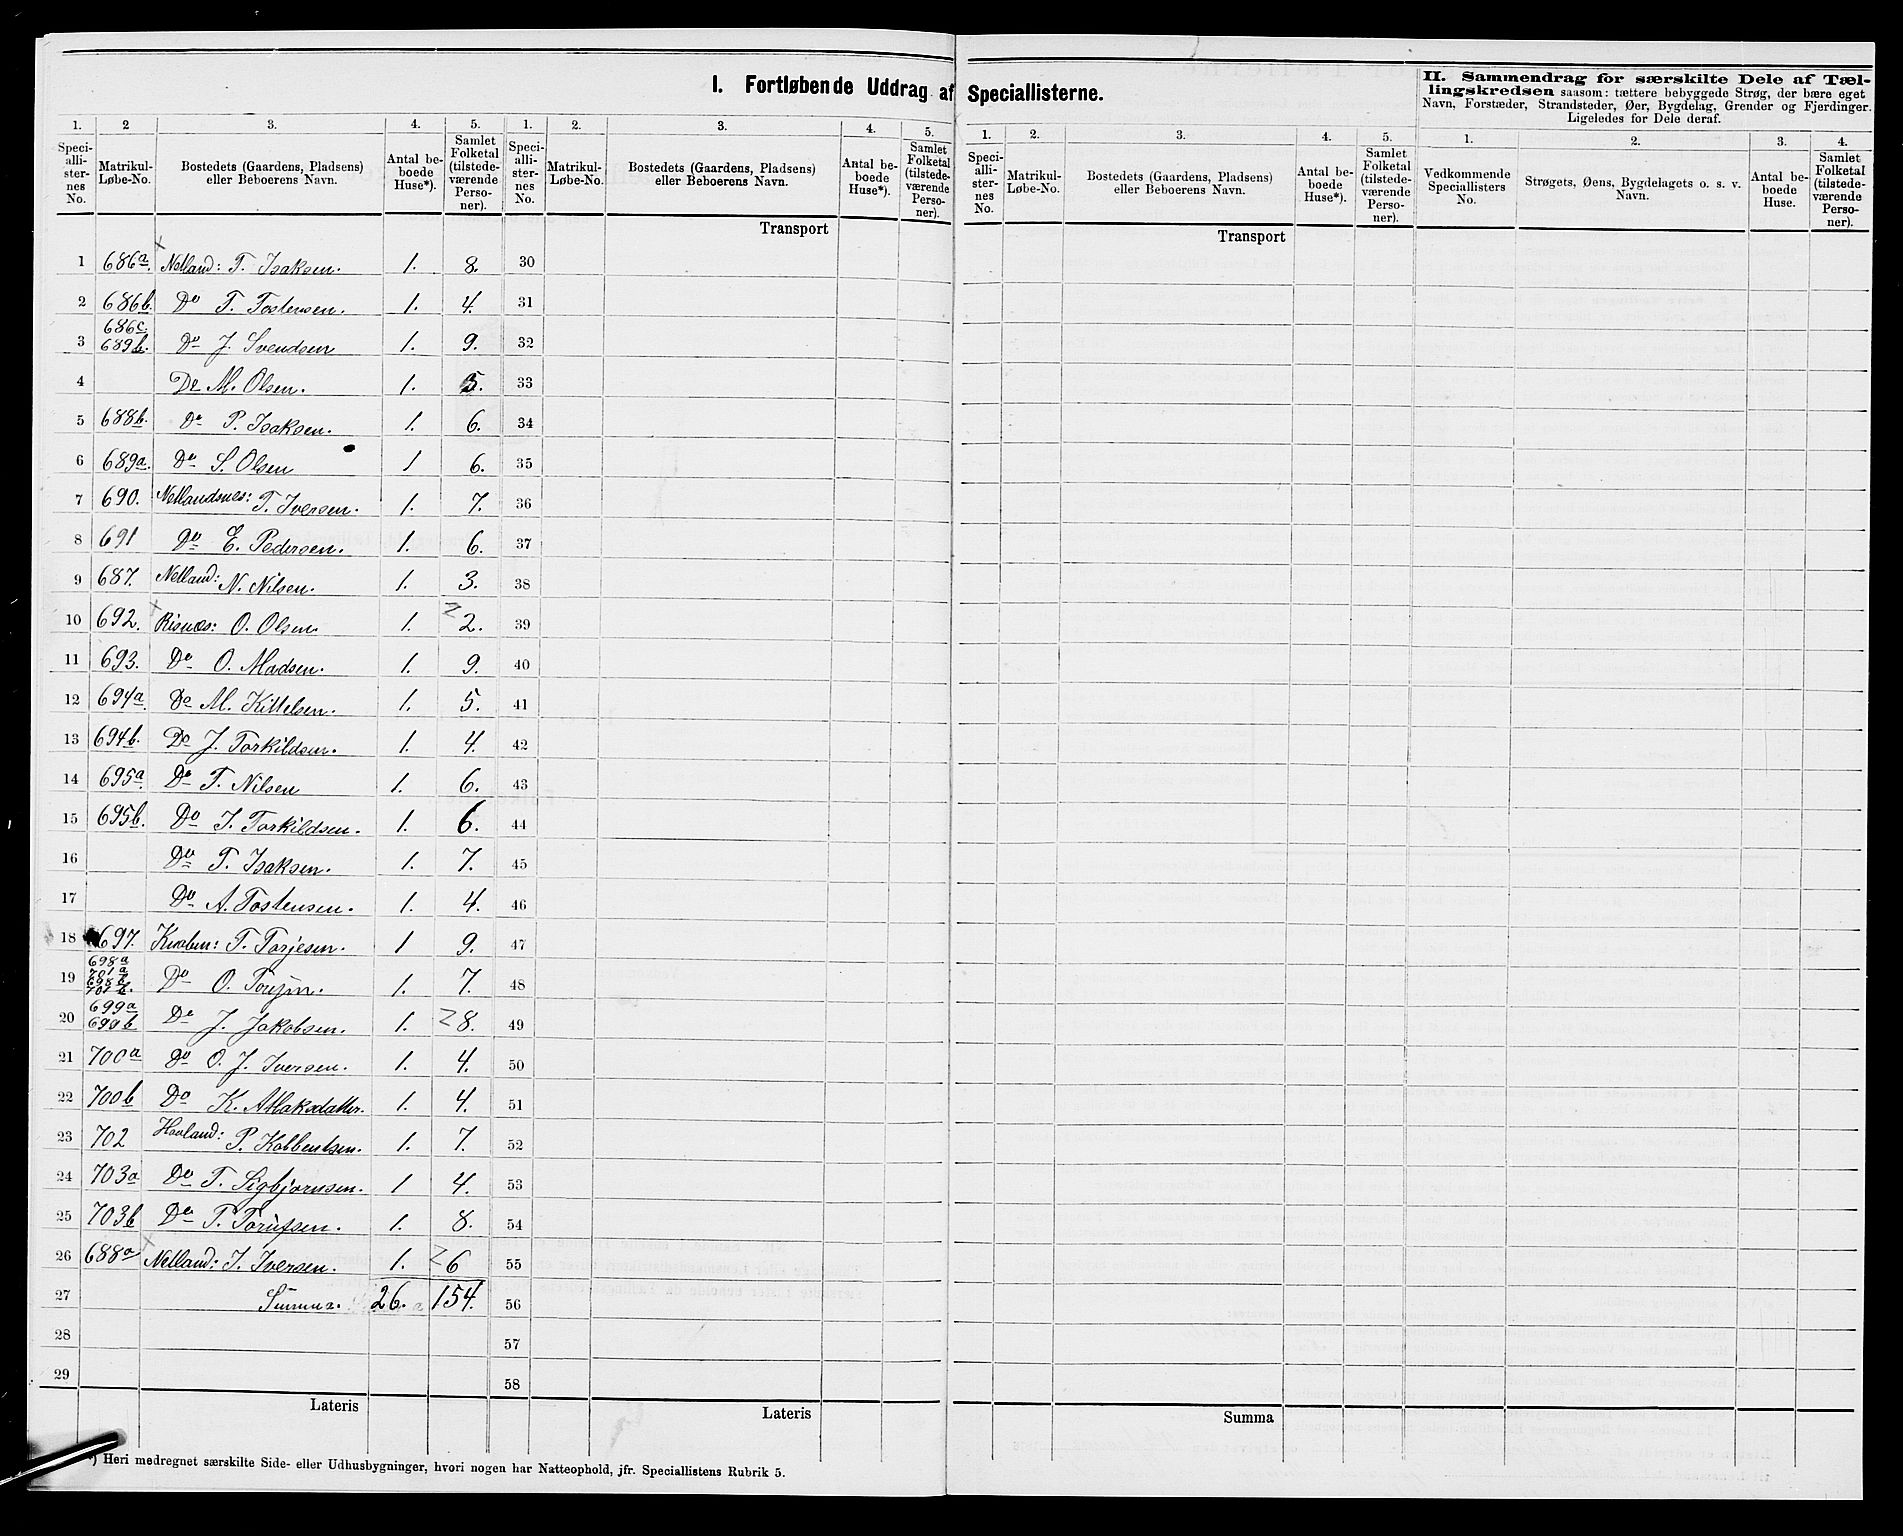 I. Fortløbende Uddrag af Speciallisterne.
II. Sammendrag for særskilte Dele af Tæl-
lingskredsen saasom: tættere bebyggede Strøg, der bære eget
Navn, Forstæder, Strandsteder, Øer, Bygdelag, Grender og Fjerdinger.
Ligeledes for Dele deraf.
1. 2 3. 4. 5. 1. 2. 3. 4. 5. 1. 2. 3. 4. 5. 1. 2. 3. 4.
Speci-alli-ster-nes No. Matrikul-Løbe-No. Bostedets (Gaardens, Pladsens) eller Beboerens Navn. Antal be-boede Huse*). Samlet Folketal (tilstede-værende Perso-ner).
Speci-alli-ster-nes No. Matrikul-Løbe-No. Bostedets (Gaardens, Pladsens) eller Beboerens Navn. Antal be-boede Huse*). Samlet Folketal (tilstede-værende Perso-ner).
Speci-alli-ster-nes No. Matrikul-Løbe-No. Bostedets (Gaardens, Pladsens) eller Beboerens Navn. Antal be-boede Huse*). Samlet Folketal (tilstede-værende Perso-ner).
Vedkommende Speciallisters No. Strøgets, Øens, Bygdelagets o. s. v. Navn. Antal be-boede Huse. Samlet Folketal (tilstede-værende Perso-ner).
Transport Transport
1 686a. Netland: T. Isaksen. 1. 8. 30
2 686b. Do T. Tostensen. 1. 4. 31
3 686c. 689b. Do J. Svendsen 1. 9. 32
4 Do M. Olsen. 1. 5. 33
5 688b. Do P. Isaksen. 1. 6. 34
6 689a. Do S. Olsen 1 6. 35
7 690. Netlandsnes: T. Iversen. 1. 7. 36
8 691 Do E. Pedersen. 1. 6. 37
9 687. Netland: N. Nilsen. 1. 3. 38
10 692. Risnæs: O. Olsen. 1. 2. 39
11 693. Do O. Madsen. 1. 9. 40
12 694a. Do M. Kittelsen. 1. 5. 41
13 694b. Do J. Torkildsen. 1. 4. 42
14 695a. Do T. Nilsen 1. 6. 43
15 695b. Do J. Torkildsen. 1. 6. 44
16 Do T. Isaksen. 1. 7. 45
17 Do A. Tostensen. 1. 4. 46
18 697. Knaben: T. Torjesen. 1 9. 47
19 698a 701a 698b 701b. Do O. 1. 7. 48
20 699a 699b Do J. Jakobsen. 1. 8. 49
21 700a Do O. J. Iversen. 1. 4. 50
22 700b Do K. Atlaksdatter. 1. 4. 51
23 702 Hauland: P. Kolbentsen. 1. 7. 52
24 703a Do T. Sigbjørnsen. 1 4. 53
25 703b Do T. 1. 8. 54
26 688a Netland: J. Iversen. 1. 6 55
27 Summa. 26. 154. 56
28 57
29 58
Lateris Lateris Summa
*) Heri medregnet særskilte Side- eller Udhusbygninger, hvori nogen har Natteophold, jfr. Speciallistens Rubrik 5.